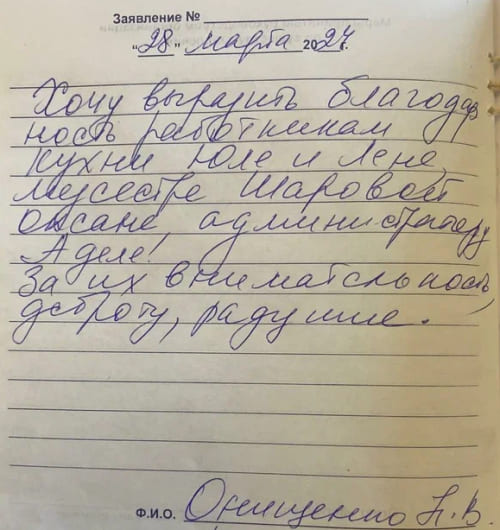 Заявление №
"28" марта 2024г.
Хочу выразить благодар
ность работникам
кухни Юле и Лене,
м/сестре Шаровой
Оксане, администратору
Аделе!
За их внимательность,
доброту, радушие.
Ф.И.О. Онищенко Н.В